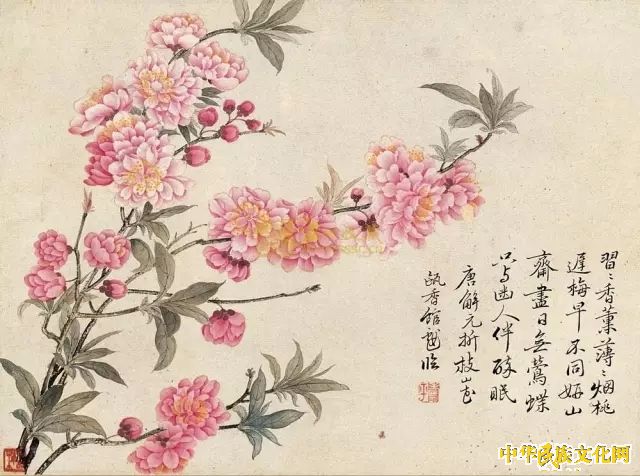 習〻香薰薄〻烟桃
遲梅早不同妍山
齋盡日無鶯蝶
只与幽人伴醉眠
唐解元折枝山花
甌香館臨
中华民族文化网